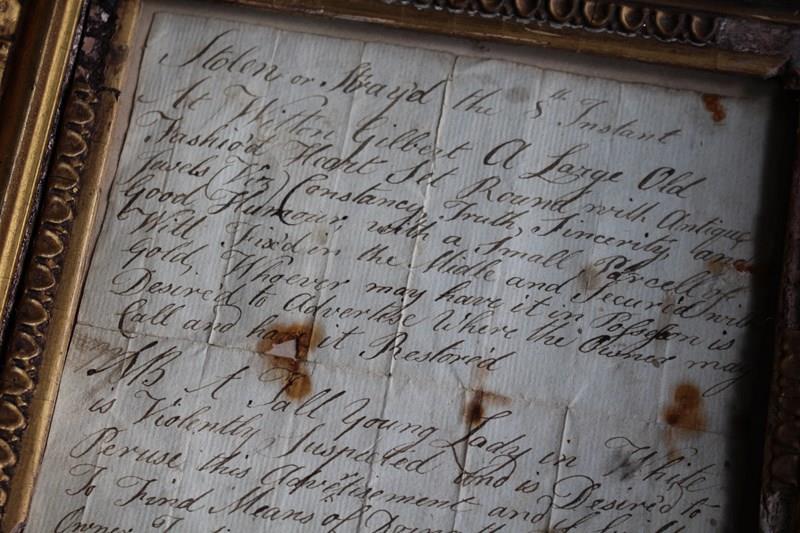 Stolen or Stray'd the 5th Instant
At Wilton Gilbert A Large Old
Fashio'd Heart Set Round with Antique
Jewels (Viz) Constancy, Truth, Sincerity, and
Good Humour, with a Small Parcell of
Will Fixed in the Midle and Secur'd with
Gold, Whoever may have it in Possession is
Desired to Advertise Where the Owner may
Call and have it Restored
NB A Tall Young Lady in White
is Violently Suspected and is Desired to
Peruse this Advertisement and
To Find Means of Doing
Owner